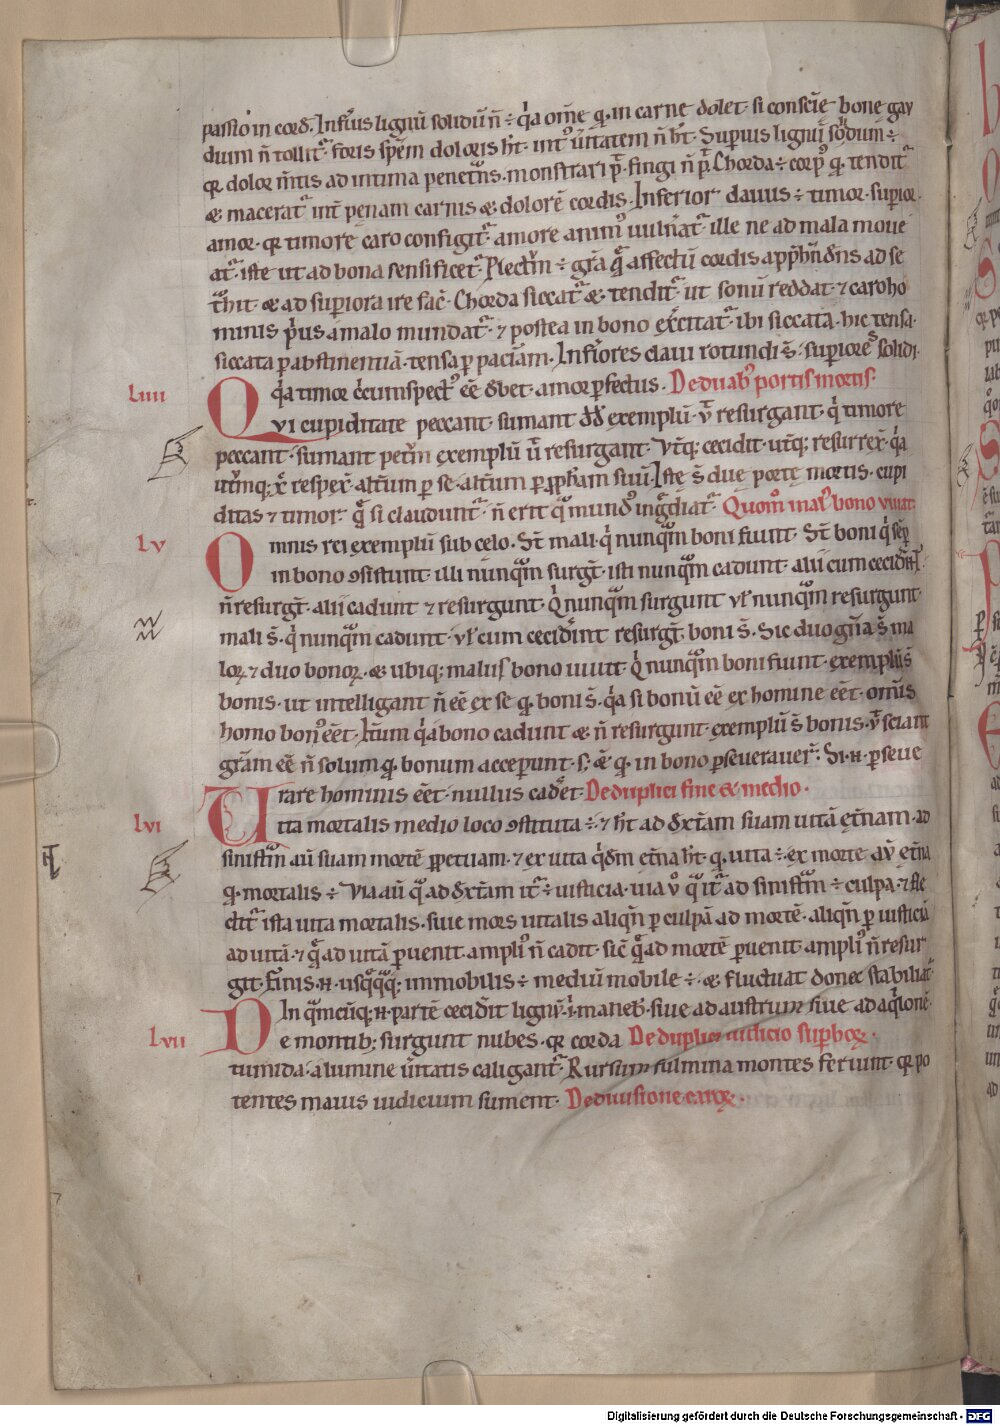 passio in cord̄. Inferius lignū solidū n̄ ÷ q̓a om̄e q̓ in carne dolet. si conscīe bone gau
dium n̄ tollit᷑. foris spēm doloris h̄t. int᷑ ūitatem n̄ h̄t. Superius lignū solidum ÷
q̓ dolor m̄tis ad intima penet̄ns. monstrari p̄t. fingi n̄ p̄t. Chorda ÷ corp᷒ q̓ tendit᷑
& macerat᷑ int̄ penam carnis & dolorē cordis. Inferior clauus ÷ timor. superior
amor. q̓ timore caro configit᷑. amore anim᷒ uuln̄at᷑. ille ne ad mala moue
at᷑. iste ut ad bona sensificet᷑. Plectrū ÷ gr̄a q̄ affectū cordis app̄hendēs ad se
t̓hit. & ad superiora ire fac̄. Chorda siccat᷑ & tendit᷑ ut sonū reddat. ⁊ caro ho
minis p̓us a malo mundat᷑. ⁊ postea in bono exc̓itat᷑. ibi siccata. hic tensa.
siccata p abstinentiā. tensa p pacīam. Inferiores claui rotundi s̄. superiores solidi.
Liiii q̓a timor c̓cumspect᷒ eē debet. amor perfectus. De duab᷒ portis mortis.
Qui cupiditate peccant. sumant dd̄ exemplū. ut resurgant. q̓ timore
peccant. sumant petr̄m exemplū ut resurgant. Vt̓q; cecidit. ut̓q; resurrex̄. q̓a
ut̓mq; xp̄c respex̄. alt̓um p se. alt̓um p pph̄am suū. Iste s̄ due porte mortis. cupi
ditas ⁊ timor. q̄ si claudunt᷑. n̄ erit q̄ mund᷒ ing̓diat᷑. Quom̄ mal᷒ bono uiuat.
Lv Omnis rei exemplū sub celo. St̄ mali q̓ nunquam boni fiunt. St̄ boni q̓ sēp
in bono ꝯsistunt. illi nunquam surgt̄. isti nunquam cadunt. alii cum cecid̄int
n̄ resurgt̄. alii cadunt ⁊ resurgunt. Q̓ nunquam surgunt ul̄ nunquam resurgunt
mali s̄. q̓ nunquam cadunt. ul̄ cum cecid̄int resurgt̄. boni s̄. Sic duo gn̄a s̄ ma
loꝝ. ⁊ duo bonoꝝ. & ubiq; malus bono uiuit. Q̓ nunquam boni fiunt. exemplū s̄
bonis. ut intelligant n̄ eē ex se q̓ boni s̄. q̓a si bonū eē ex homine eēt. omīs
homo bon᷒ eēt. It̄um q̓a bono cadunt & n̄ resurgunt. exemplū s̄ bonis. ut sciant
gr̄am eē n̄ solum q̓ bonum acceperunt. s; & q̓ in bono perseuerauer̄. Si .n. perseue
rare hominis eēt. nullus cad̄et. De duplici fine & medio.
Lvi Vita mortalis medio loco ꝯstituta ÷. ⁊ h̄t ad dext̓am suam uitā et̄nam. ad
sinist̓m au̅ suam mortē ppetuam. ⁊ ex uita q̓dm et̄na h̄t. q̓ uita ÷. ex morte au̅ et̄na
q̓ mortalis ÷. Via au̅ q̄ ad dext̓am it᷑ ÷ iusticia. uia u̓ q̄ it᷑ ad sinist̓m ÷ culpa. ⁊ fle
ctit᷑ ista uita mortalis. siue mors uitalis aliqn̄ p culpā ad mortē. aliqn̄ p iusticiā
ad uitā. ⁊ q̄ ad uitā puenit. ampli᷒ n̄ cadit. sic̄ q̄ ad mortē puenit. ampli᷒ n̄ resur
git. Finis .n. usq̄quaq; immobilis ÷. mediū mobile ÷. & fluctuat donec stabiliat᷑.
In quamcūq; .n. partē cecid̄it lignū. i. maneb̄. siue ad austrum siue ad aq̓lonē.
Lvii De montib; surgunt nubes. q̓ corda De duplici iudicio superboꝝ.
tumida a lumine ūitatis caligant᷑. Rursum fulmina montes feriunt. q̓ po
tentes maius iudicium sument. De diuisione earoꝝ.